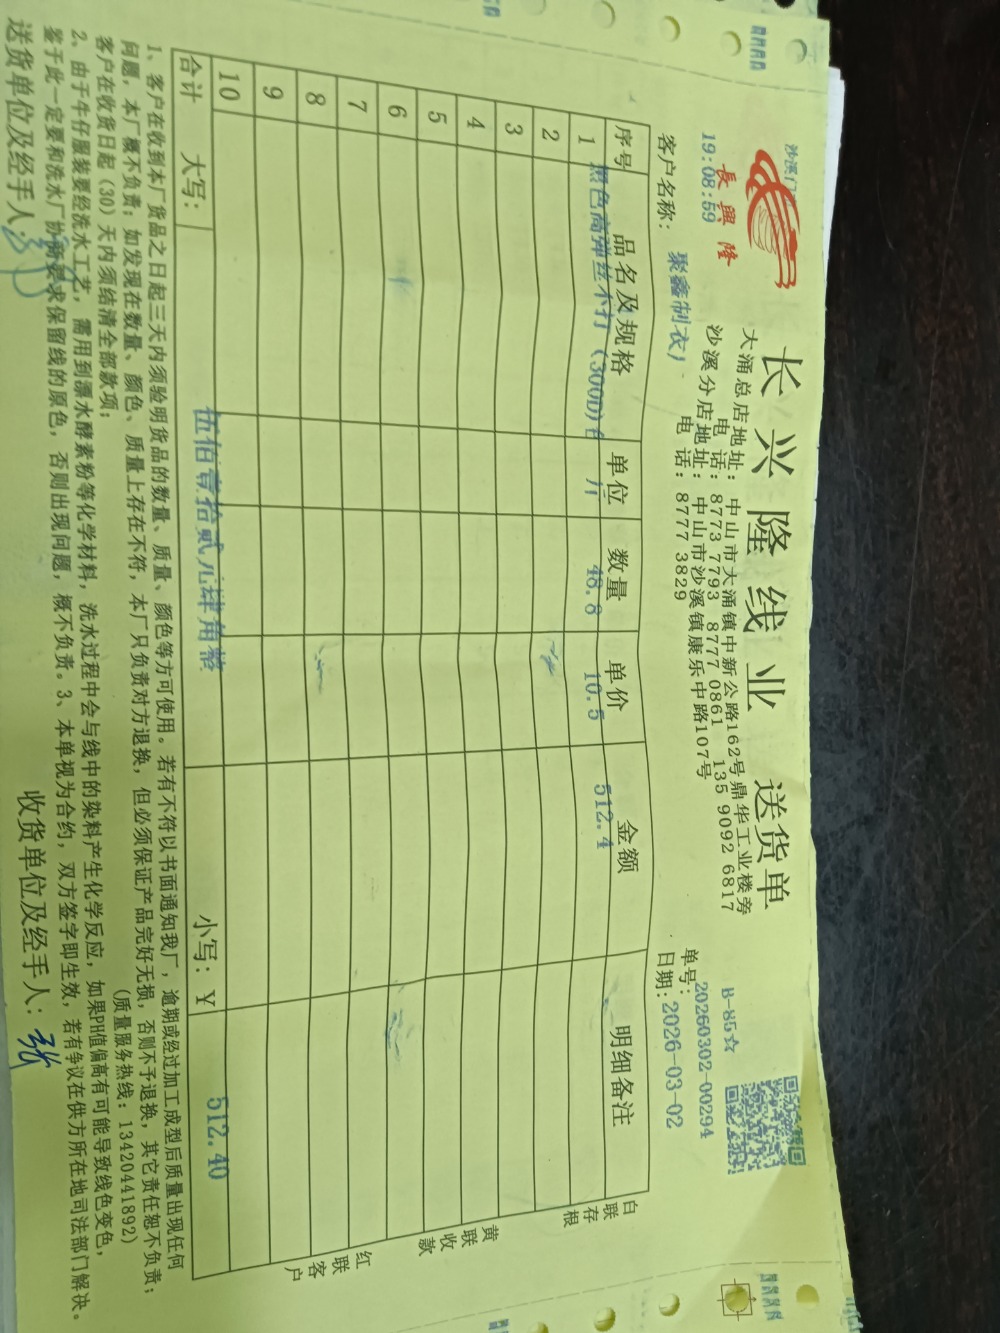 沙溪门
長興隆
19:08:59
长兴隆线业 送货单
大涌总店地址: 中山市大涌镇中新公路162号鼎华工业楼旁
电 话: 8773 7793 8777 0861 135 9092 6817
沙溪分店地址: 中山市沙溪镇康乐中路107号
电 话: 8777 3829
B-85☆
单号: 20260302-00294
日期: 2026-03-02
客户名称: 聚鑫制衣厂
序号 品名及规格 单位 数量 单价 金额 明细备注
1 黑色高弹丝不打(300D) 斤 48.8 10.5 512.4
2
3
4
5
6
7
8
9
10
合计 大写: 伍佰壹拾贰元肆角整 小写: ¥ 512.40
白联存根
黄联收款
红联客户
1、客户在收到本厂货品之日起三天内须验明货品的数量、质量、颜色等方可使用。若有不符以书面通知我厂,逾期或经过加工成型后质量出现任何
问题,本厂概不负责;如发现在数量、颜色、质量上存在不符,本厂只负责对方退换,但必须保证产品完好无损,否则不予退换,其它责任恕不负责;
客户在收货日起(30)天内须结清全部款项; (质量服务热线: 13420441892)
2、由于牛仔服装要经洗水工艺,需用到漂水酵素粉等化学材料,洗水过程中会与线中的染料产生化学反应,如果PH值偏高有可能导致线色变色,
鉴于此一定要和洗水厂协商要求保留线的原色,否则出现问题,概不负责。3、本单视为合约,双方签字即生效,若有争议在供方所在地司法部门解决。
送货单位及经手人: 收货单位及经手人: 张